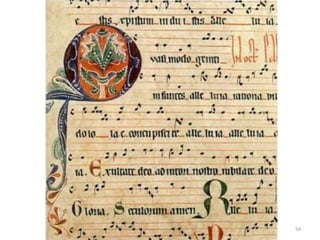 stis. xpistum in du i stis alle lu ia
vasi modo geniti
infantes alle luia rationa
do lo ia e concupisci te alle lu ia alle lu ia a
ia. Exultate deo adiutori nostro iubilate deo
Gloria. Seculorum amen